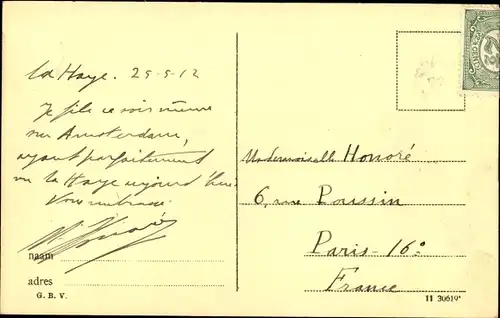 La Haye. 25-5-12
Je file ce soir même
sur Amsterdam,
ayant parfaitement
vu La Haye aujourd'hui
Vous embrasse.
Honoré
naam
adres
G. B. V.
Mademoiselle Honoré
6, rue Poussin
Paris-16e
France
11 30619*